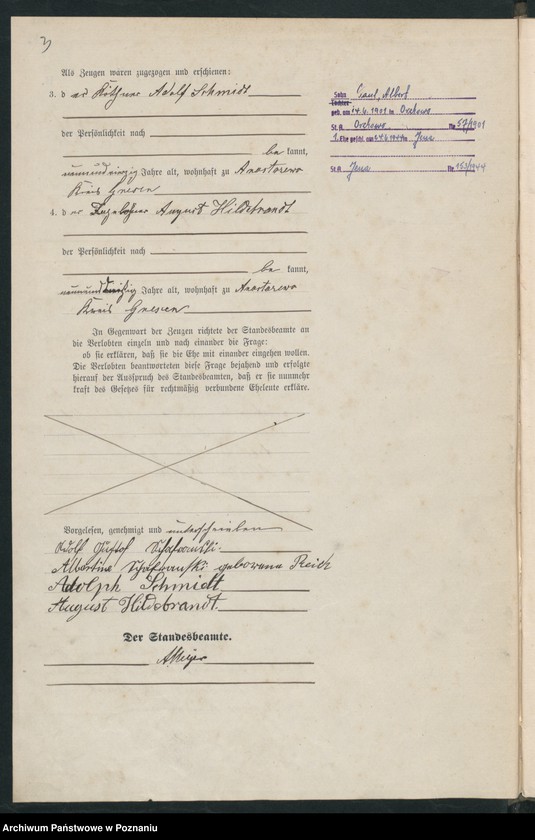 3
Als Zeugen waren zugezogen und erschienen:
3. d er Käthner Adolf Schmidt
der Persönlichkeit nach
be kannt,
Jahre alt, wohnhaft zu Anastazewo
Kreis Gnesen
4. d er August Hildebrandt
der Persönlichkeit nach
be kannt,
Jahre alt, wohnhaft zu Anastazewo
Kreis Gnesen
In Gegenwart der Zeugen richtete der Standesbeamte an
die Verlobten einzeln und nach einander die Frage:
ob sie erklären, daß sie die Ehe mit einander eingehen wollen.
Die Verlobten beantworteten diese Frage bejahend und erfolgte
hierauf der Ausspruch des Standesbeamten, daß er sie nunmehr
kraft des Gesetzes für rechtmäßig verbundene Eheleute erkläre.
Vorgelesen, genehmigt und unterschrieben
Adolf Gustof
Albertine geborene Reich
Adolph Schmidt
August Hildebrandt
Der Standesbeamte.
Sohn Paul, Albert
Tochter
geb. am 14.6.1901 in Orchowo
St.A. Orchowo Nr 57/1901
1. Ehe geschl. am 24.6.1944 in Jena
St.A. Jena Nr /1944
Archiwum Państwowe w Poznaniu